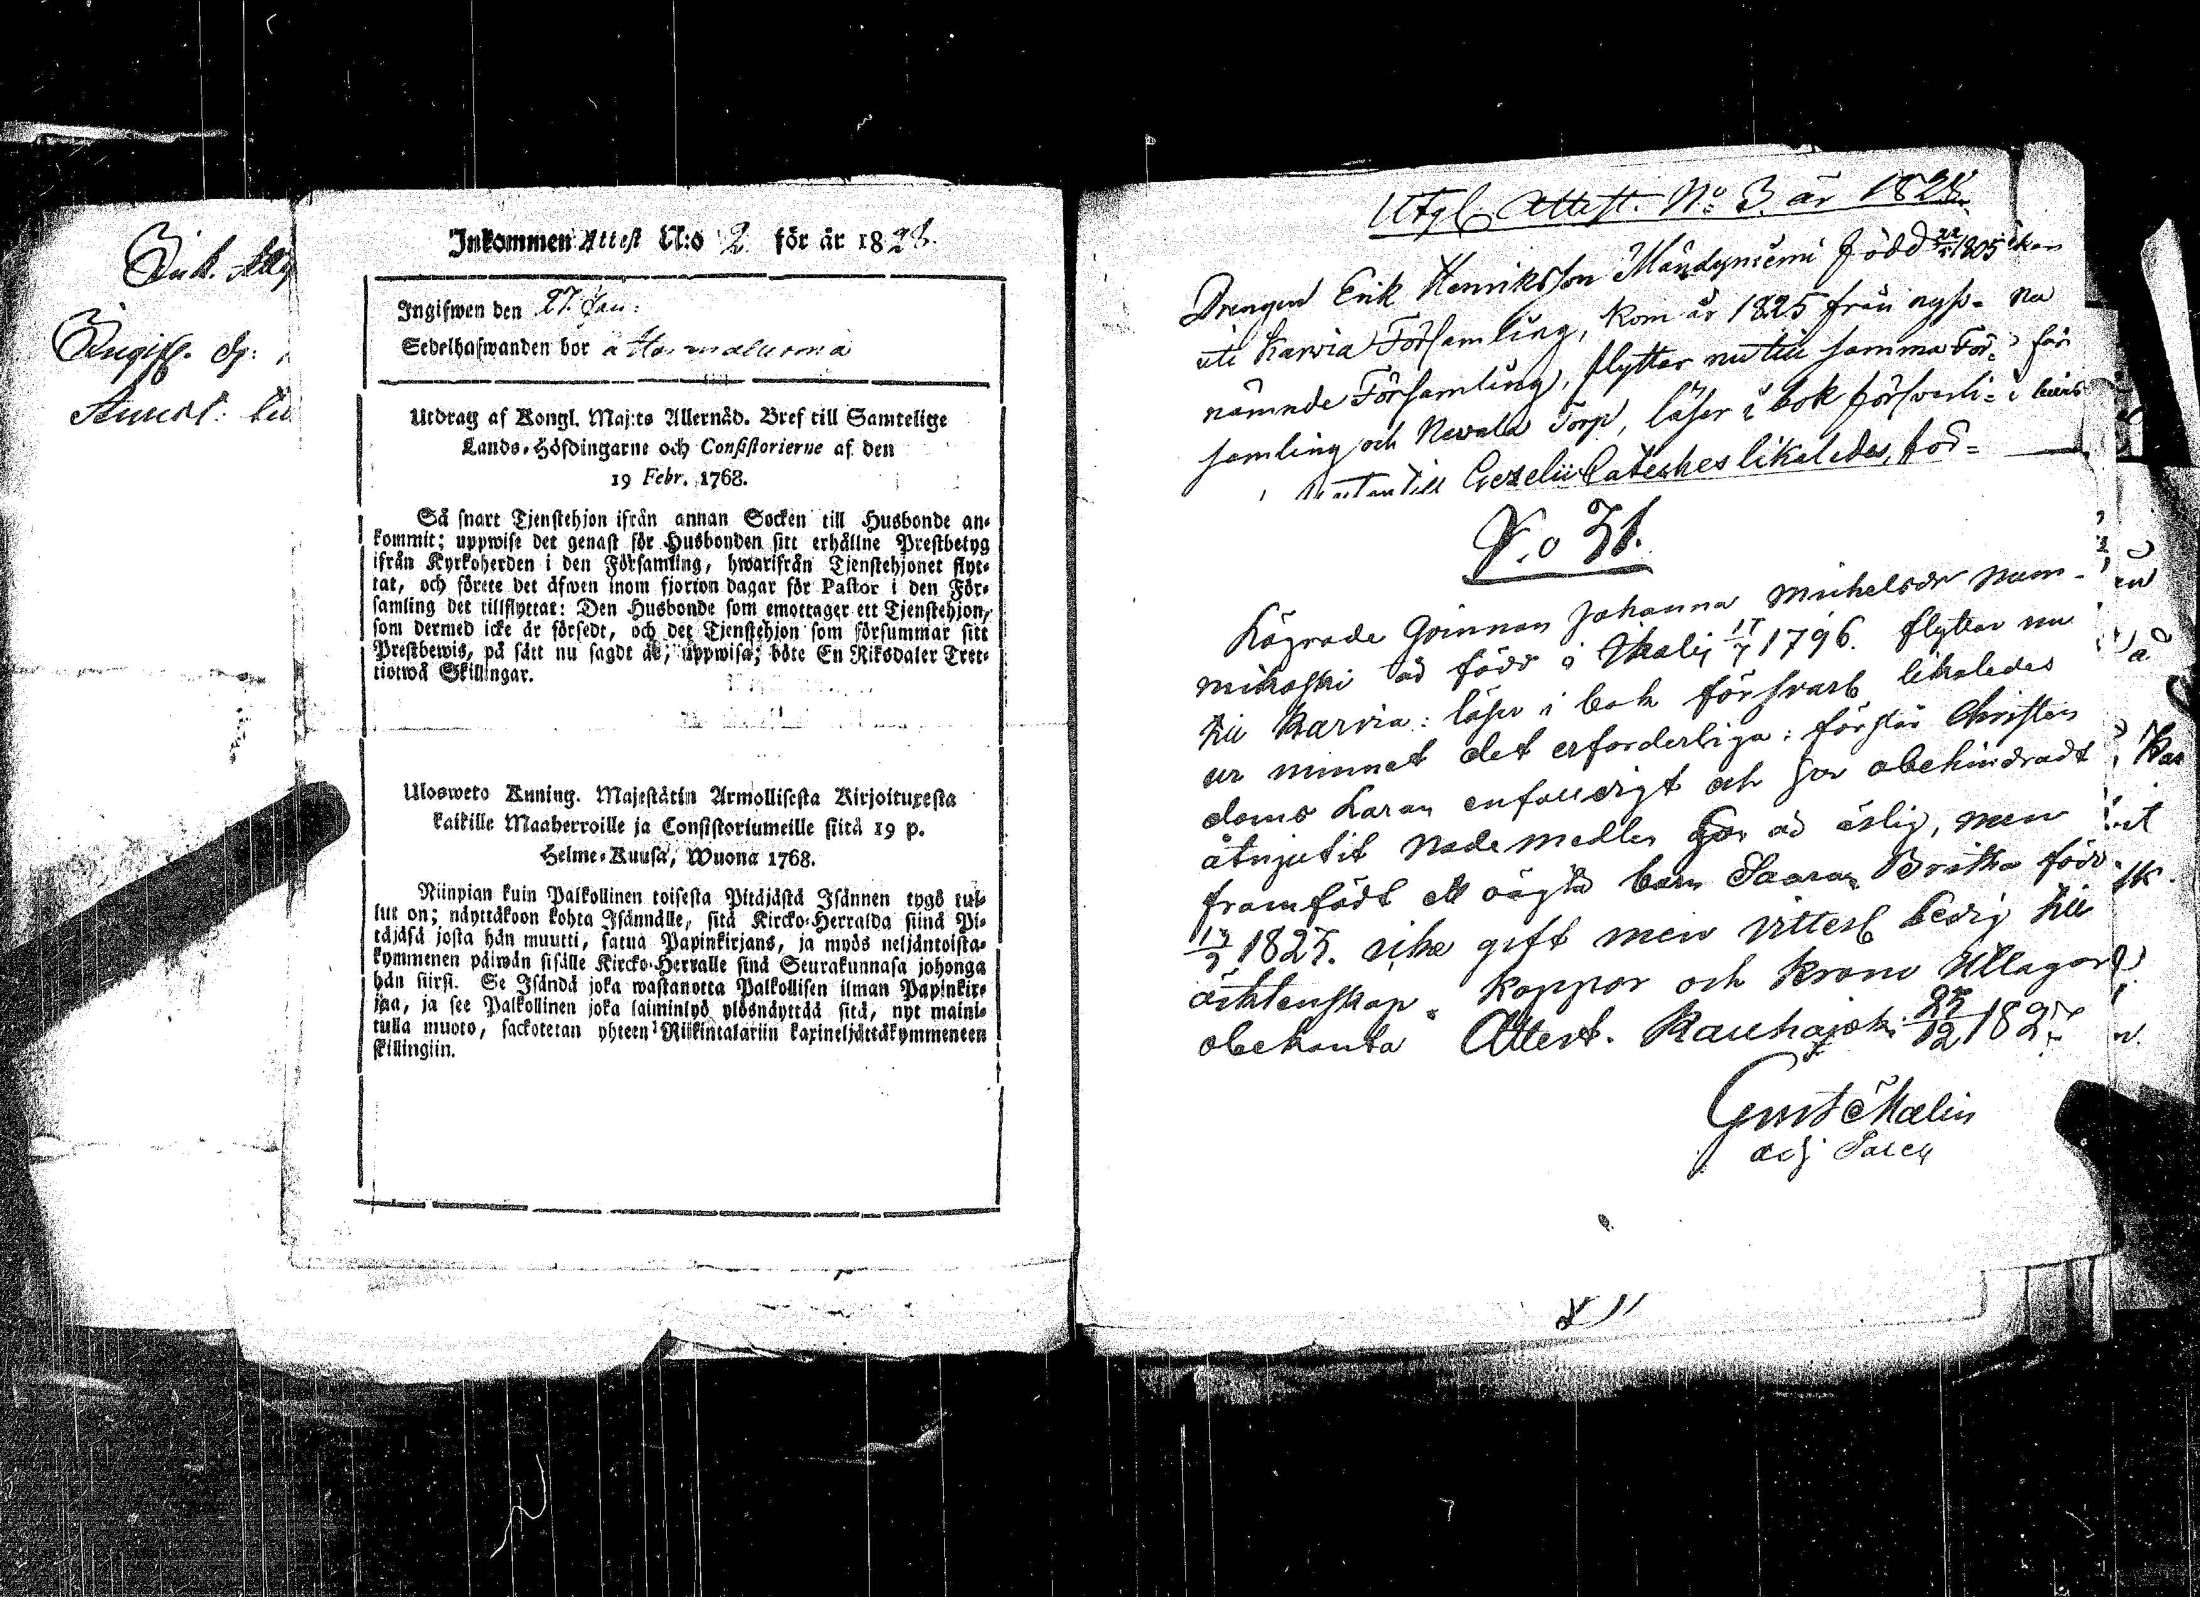 Ink. Att
Ingifv. d:
Inkommen Attest N:o 2 för år 1828.
Ingifwen den 27. Jan:
Sedelhafwanden bor å
Utdrag af Kongl. Maj:ts Allernåd. Bref till Samtelige
Lands-Höfdingarne och Consistorierne af den
19 Febr. 1768.
Så snart Tjenstehjon ifrån annan Socken till Husbonde an-
kommit; uppwise det genast för Husbonden sitt erhållne Prestbetyg
ifrån Kyrkoherden i den Församling, hwarifrån Tjenstehjonet flyt-
tat, och förete det äfwen inom fjorton dagar för Pastor i den För-
samling det tillflyttat: Den Husbonde som emottager ett Tjenstehjon,
som dermed icke är försedt, och det Tjenstehjon som försummar sitt
Prestbewis, på sätt nu sagdt är, uppwisa; böte En Riksdaler Tret-
tiotwå Skillingar.
Ulosweto Kuning. Majestätin Armollisesta Kirjoituxesta
kaikille Maaherroille ja Consistoriumeille siitä 19 p.
Helme-Kuusa, Wuona 1768.
Niinpian kuin Palkollinen toisesta Pitäjästä Isännen tygö tul-
lut on; näyttäköön kohta Isännälle, sitä Kircko-Herralda siinä Pi-
täjäsä josta hän muutti, saatua Papinkirjans, ja myös neljäntoista-
kymmenen päiwän sisälle Kircko-Herralle sinä Seurakunnasa johonga
hän siirsi. Se Isändä joka wastanotta Palkollisen ilman Papinkir-
jaa, ja see Palkollinen joka laiminlyö ylösnäyttää sitä, nyt maini-
tulla muoto, sackotetan yhteen Riikintalariin kaxineljättäkymmeneen
skillingiin.
Utgl. Attest. No 3. år 1828.
Drengen Erik Henriksson Mändyniemi född 1805
uti Karvia Församling, kom år 1825 från nyss-
nämnde Församling, flyttar nu till samma För-
samling och Nevala Torp, läser i bok försvarli-
utantill Gezelii Cateches likaledes, för-
N:o 31.
Lägrade Qvinnan Johanna Michelsdr
är född i Ikalis 17/7 1796. flyttar nu
till Karvia: läser i bok försvarl likaledes
ur minnet det erforderliga: förstår Christen
doms Läran enfalleligt och har obehindradt
åtnjutit Nademedlen är ärlig, men
framfödt ett oägta barn Saara Britha född
1825. icke gift men vitterl ledig till
äcktenskap. Koppor och Krono Utlagor
obekanta Attest. Kauhajoki 25/12 182
Gust Malin
adj Sacell